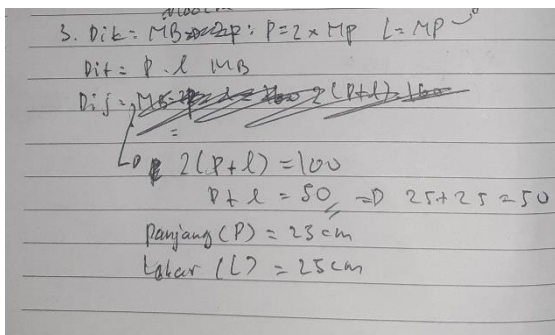 3. Dik = MB : P = 2 × MP L = MP
Dit = P . l MB
Dij =
=
2(P+l) = 100
P + l = 50 => 25+25 = 50
Panjang (P) = 25 cm
Lebar (L) = 25 cm